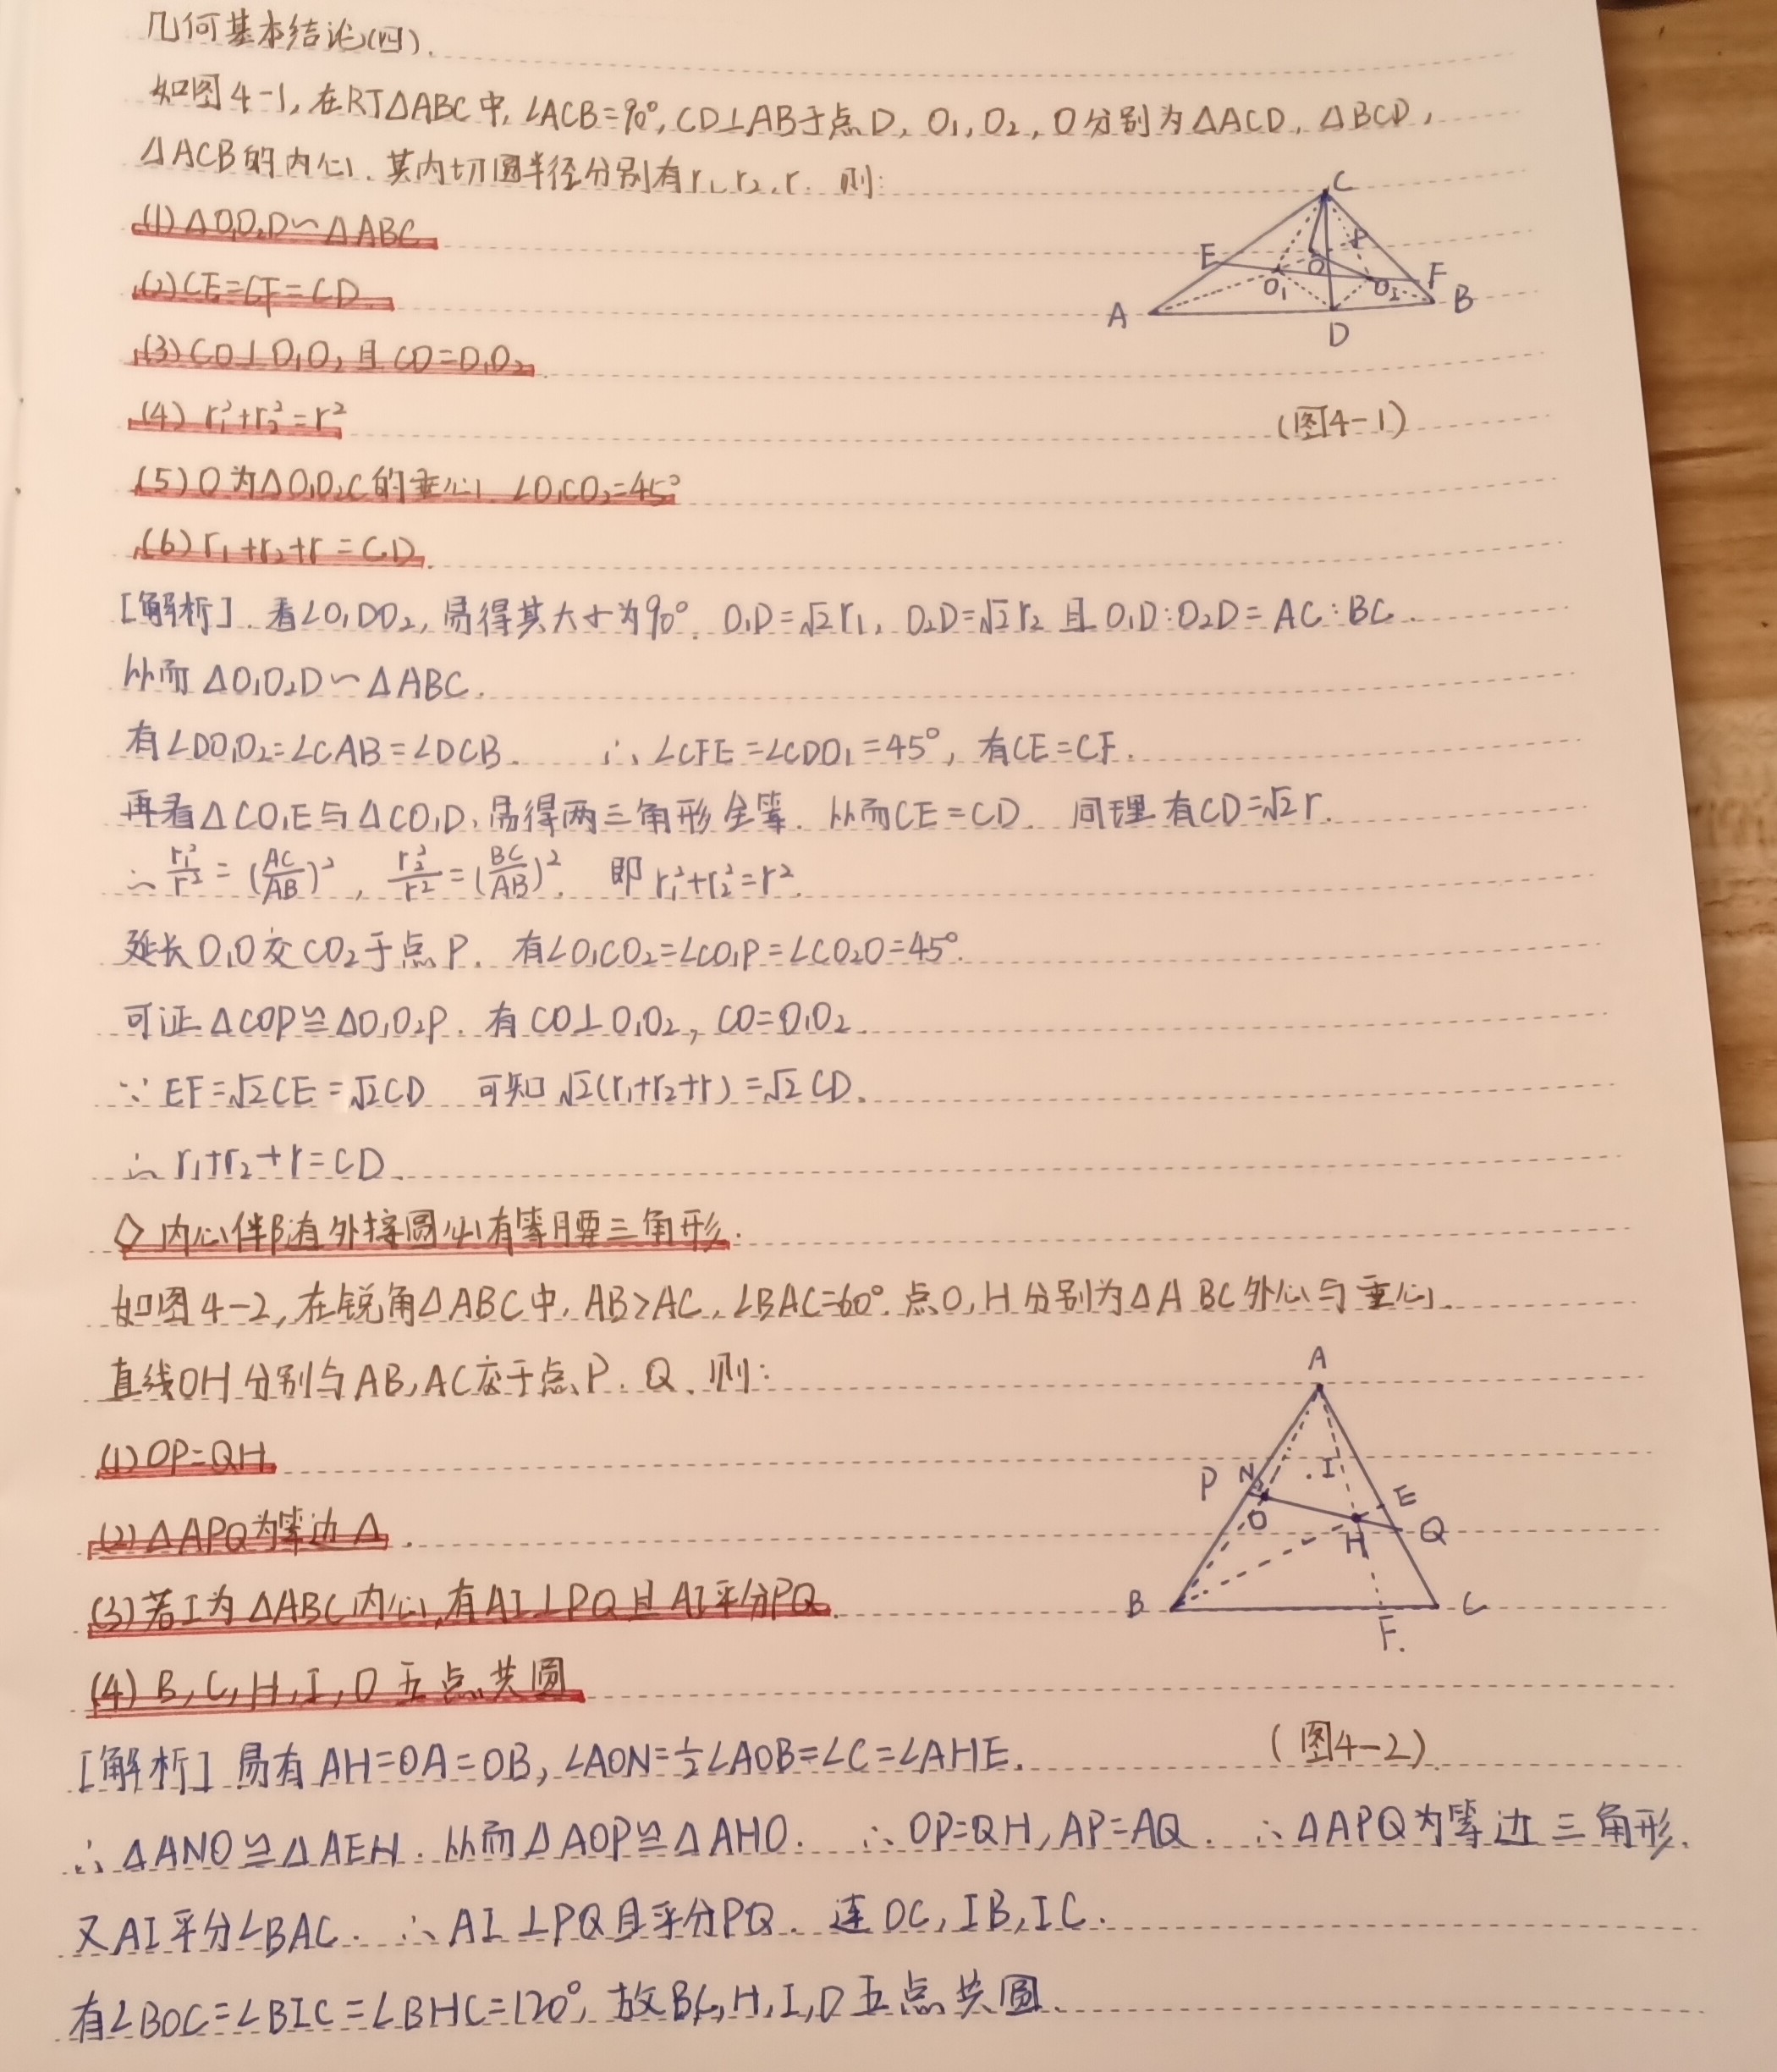 几何基本结论(四).
如图4-1,在RT△ABC中,∠ACB=90°,CD⊥AB于点D,O₁,O₂,O分别为△ACD,△BCD,
△ACB的内心.其内切圆半径分别有r₁,r₂,r.则:
(1)△O₁O₂D∽△ABC
(2)CE=CF=CD
(3)CO⊥O₁O₂且CO=O₁O₂
(4) r₁²+r₂²=r²
(5)O为△O₁O₂C的垂心.∠O₁CO₂=45°
(6)r₁+r₂+r=CD.
C
E
P
O
O₁
O₂
F
A
D
B
(图4-1)
[解析].看∠O₁DO₂,易得其大小为90°.O₁D=√2r₁,O₂D=√2r₂且O₁D:O₂D=AC:BC.
从而△O₁O₂D∽△ABC.
有∠DO₁O₂=∠CAB=∠DCB. ∴∠CFE=∠CDO₁=45°,有CE=CF.
再看△CO₁E与△CO₁D,易得两三角形全等.从而CE=CD. 同理有CD=√2r.
∴r₁²/r²=(AC/AB)², r₂²/r²=(BC/AB)². 即r₁²+r₂²=r².
延长O₁O交CO₂于点P.有∠O₁CO₂=∠CO₁P=∠CO₂O=45°.
可证△COP≌△O₁O₂P.有CO⊥O₁O₂,CO=O₁O₂.
∵EF=√2CE=√2CD 可知√2(r₁+r₂+r)=√2CD.
∴r₁+r₂+r=CD.
◇内心伴随有外接圆心有等腰三角形.
如图4-2,在锐角△ABC中,AB>AC,∠BAC=60°.点O,H分别为△ABC外心与垂心.
直线OH分别与AB,AC交于点P.Q.则:
(1)OP=QH
(2)△APQ为等边△.
(3)若I为△ABC内心,有AI⊥PQ且AI平分PQ.
(4)B,C,H,I,O五点共圆
A
P
N
I
E
O
H
Q
B
F.
C
(图4-2)
[解析]易有AH=OA=OB,∠AON=½∠AOB=∠C=∠AHE.
∴△ANO≌△AEH.从而△AOP≌△AHO. ∴OP=QH,AP=AQ. ∴△APQ为等边三角形.
又AI平分∠BAC. ∴AI⊥PQ且平分PQ. 连OC,IB,IC.
有∠BOC=∠BIC=∠BHC=120°,故B,C,H,I,O五点共圆.